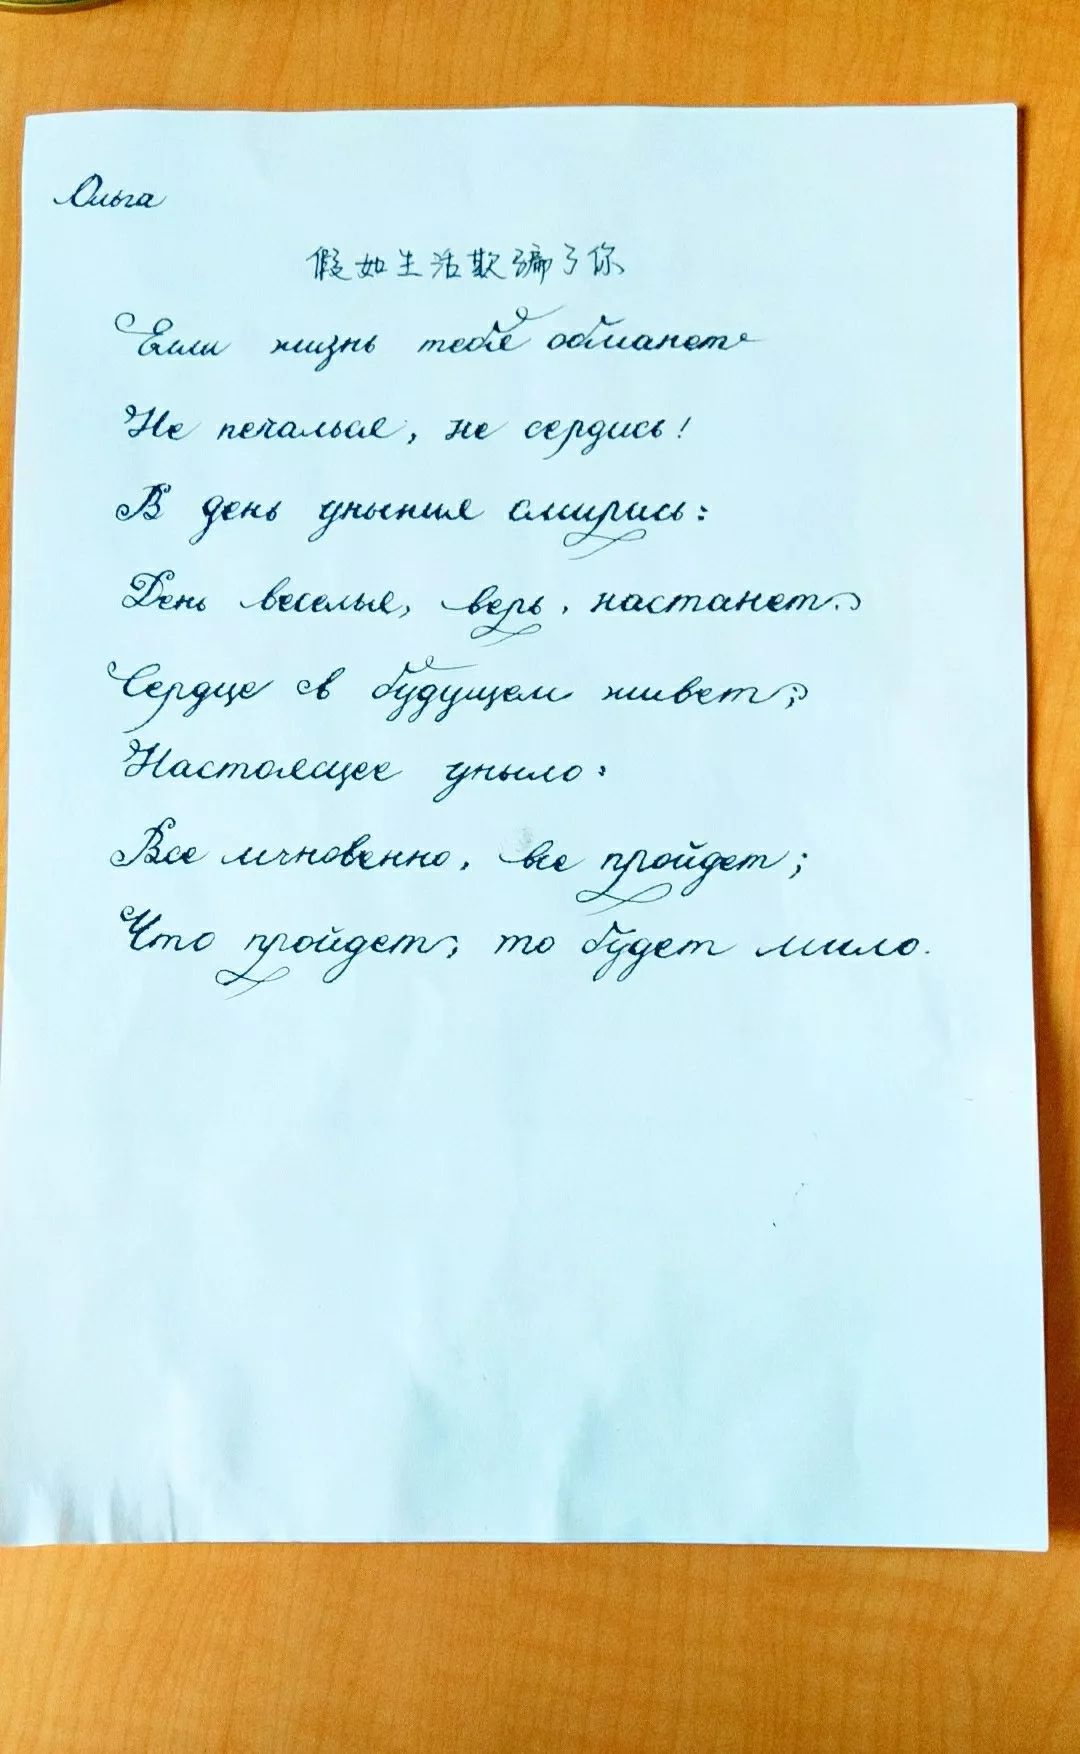 Ольга
假如生活欺骗了你
Если жизнь тебя обманет
Не печалься, не сердись!
В день уныния смирись:
День веселья, верь, настанет.
Сердце в будущем живет;
Настоящее уныло:
Все мгновенно, все пройдет;
Что пройдет, то будет мило.